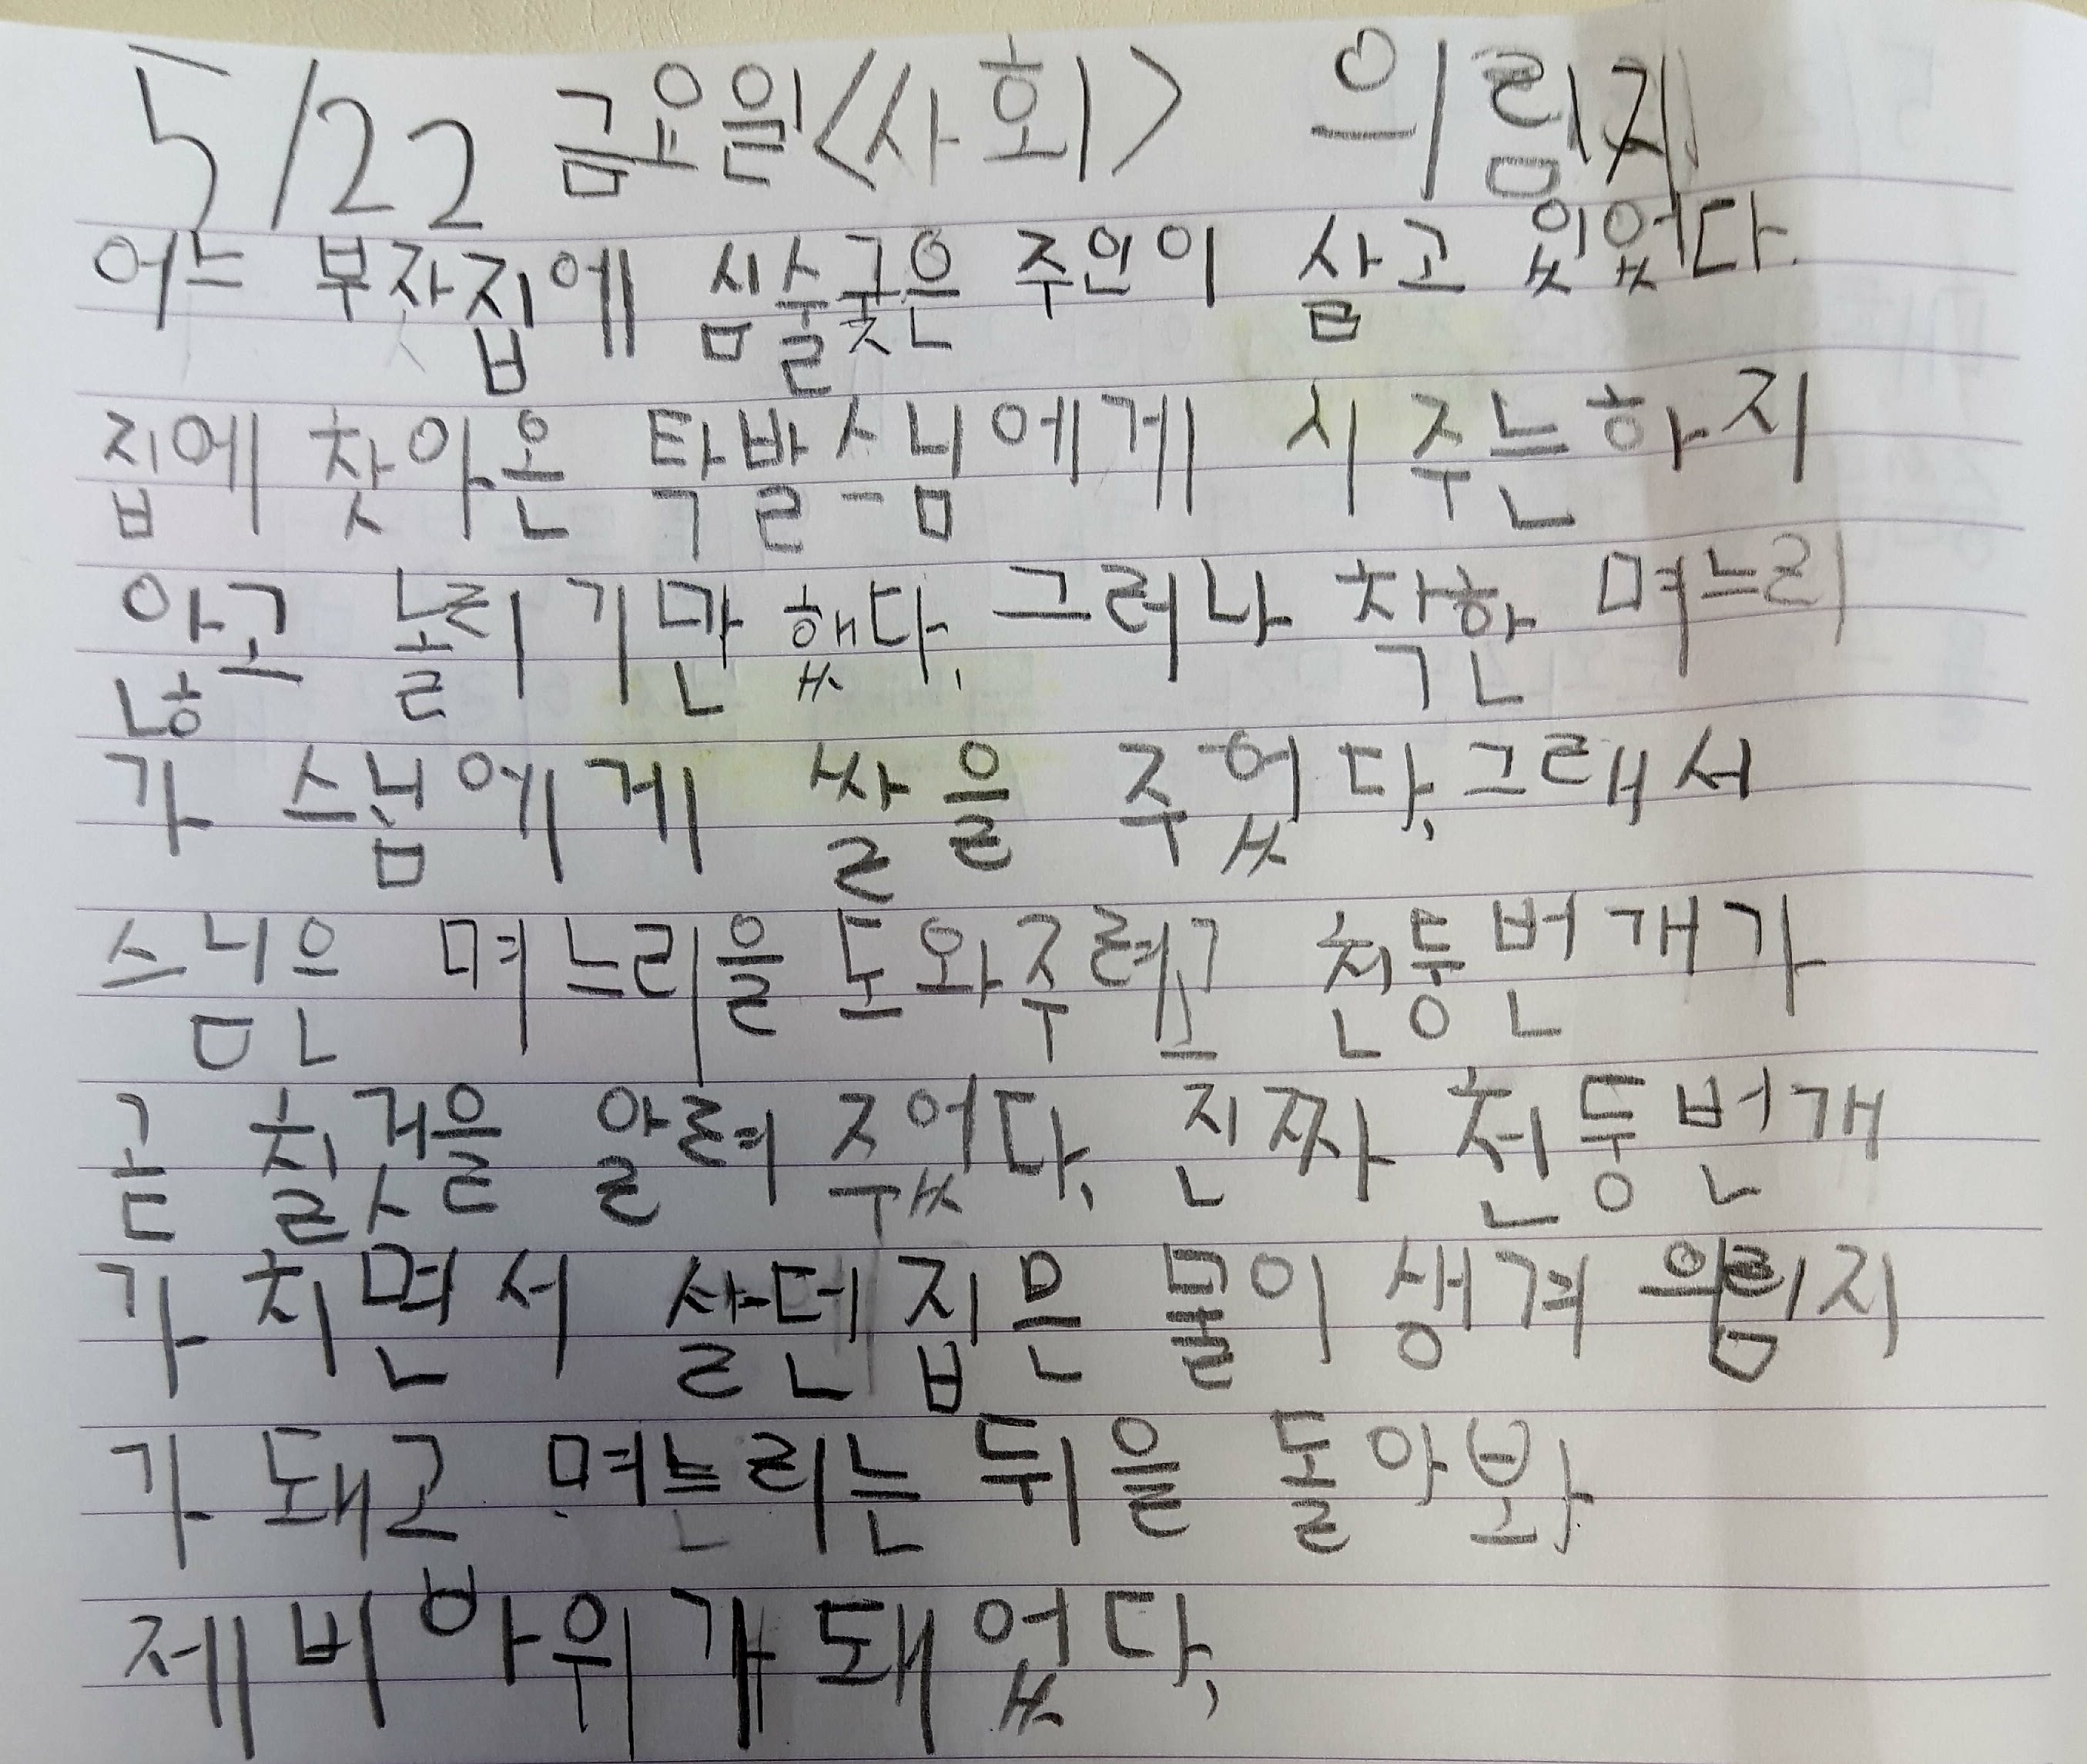 5/22 금요일<사회> 의림지
어느 부자집에 심술궂은 주인이 살고 있었다.
집에 찾아온 탁발스님에게 시주는하지
않고 놀리기만 했다. 그러나 착한 며느리
가 스님에게 쌀을 주었다. 그래서
스님은 며느리을 도와주려고 천둥번개가
곧 칠것을 알려 주었다. 진짜 천둥번개
가 치면서 살던집은 물이 생겨 의림지
가 돼고 며느리는 뒤을 돌아봐
제비바위가 돼었다.